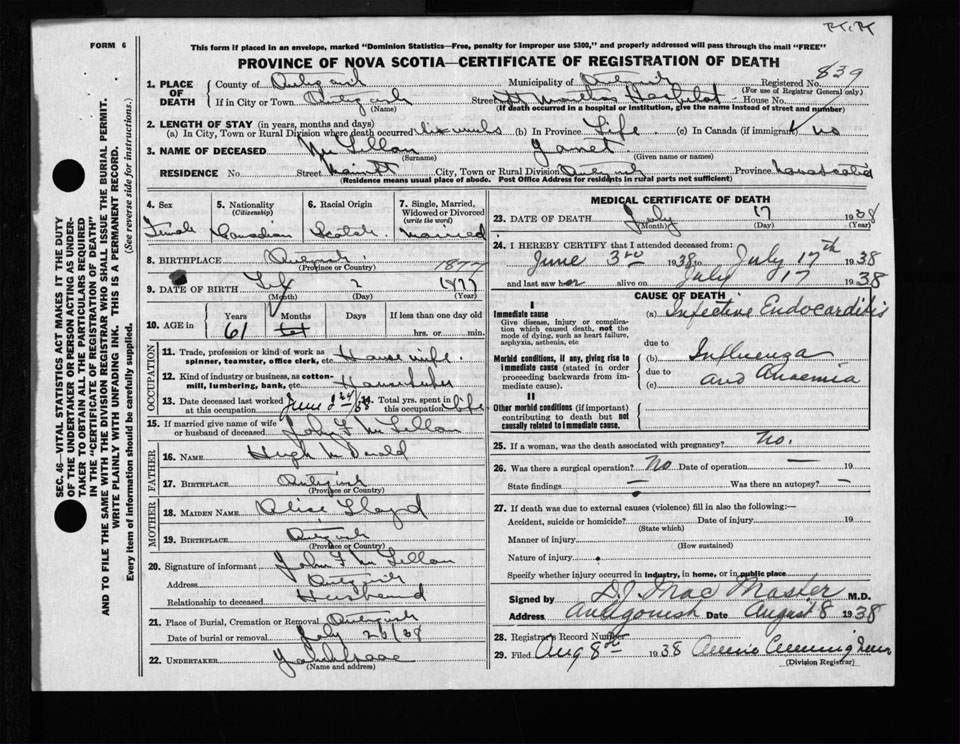 FORM 6
This form if placed in an envelope, marked "Dominion Statistics—Free, penalty for improper use $300," and properly addressed will pass through the mail "FREE"
PROVINCE OF NOVA SCOTIA—CERTIFICATE OF REGISTRATION OF DEATH
839
1. PLACE OF DEATH County of Municipality of Registered No.
(For use of Registrar General only)
If in City or Town Street House No.
(Name) (If death occurred in a hospital or institution, give the name instead of street and number)
2. LENGTH OF STAY (in years, months and days)
(a) In City, Town or Rural Division where death occurred six weeks (b) In Province Life (c) In Canada (if immigrant) no
3. NAME OF DECEASED McLellan Janet
(Surname) (Given name or names)
RESIDENCE No. Street City, Town or Rural Division Province Nova Scotia
(Residence means usual place of abode. Post Office Address for residents in rural parts not sufficient)
4. Sex Female
5. Nationality (Citizenship) Canadian
6. Racial Origin Scotch
7. Single, Married, Widowed or Divorced (write the word) Married
8. BIRTHPLACE
(Province or Country)
1877
9. DATE OF BIRTH 2 1877
(Month) (Day) (Year)
10. AGE in Years Months Days If less than one day old
61 hrs. or min.
OCCUPATION
11. Trade, profession or kind of work as spinner, teamster, office clerk, etc. Housewife
12. Kind of industry or business, as cotton-mill, lumbering, bank, etc.
13. Date deceased last worked at this occupation June 14. Total yrs. spent in this occupation Life
15. If married give name of wife or husband of deceased John F McLellan
FATHER
16. NAME Hugh McDonald
17. BIRTHPLACE
(Province or Country)
MOTHER
18. MAIDEN NAME Lloyd
19. BIRTHPLACE
(Province or Country)
20. Signature of informant John F McLellan
Address
Relationship to deceased Husband
21. Place of Burial, Cremation or Removal
Date of burial or removal July 20/38
22. UNDERTAKER
(Name and address)
MEDICAL CERTIFICATE OF DEATH
23. DATE OF DEATH July 17 1938
(Month) (Day) (Year)
24. I HEREBY CERTIFY that I attended deceased from:
June 3rd 1938 to July 17th 1938
and last saw her alive on July 17 1938
CAUSE OF DEATH
I
Immediate cause
Give disease, injury or complication which caused death, not the mode of dying, such as heart failure, asphyxia, asthenia, etc
(a) Infective Endocarditis
due to
Morbid conditions, if any, giving rise to immediate cause (stated in order proceeding backwards from immediate cause).
(b) Influenza
due to
(c) and Anaemia
II
Other morbid conditions (if important) contributing to death but not causally related to immediate cause.
25. If a woman, was the death associated with pregnancy? No.
26. Was there a surgical operation? No Date of operation — 19
State findings — Was there an autopsy? —
27. If death was due to external causes (violence) fill in also the following:—
Accident, suicide or homicide? Date of injury 19
(State which)
Manner of injury
(How sustained)
Nature of injury
Specify whether injury occurred in industry, in home, or in public place
Signed by D.J. MacMaster M.D.
Address Antigonish Date August 8 1938
28. Registrar's Record Number
29. Filed Aug 8th 1938 Annie Cunningham
(Division Registrar)
SEC. 46—VITAL STATISTICS ACT MAKES IT THE DUTY
OF THE UNDERTAKER OR PERSON ACTING AS UNDER-
TAKER TO OBTAIN ALL THE PARTICULARS REQUIRED
IN THE "CERTIFICATE OF REGISTRATION OF DEATH"
AND TO FILE THE SAME WITH THE DIVISION REGISTRAR WHO SHALL ISSUE THE BURIAL PERMIT.
WRITE PLAINLY WITH UNFADING INK. THIS IS A PERMANENT RECORD.
Every item of information should be carefully supplied. (See reverse side for instructions.)